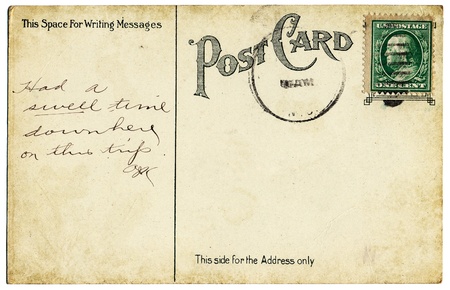 This Space For Writing Messages
POST CARD
U.S. POSTAGE
ONE CENT
Had a
swell time
down here
on this trip.
This side for the Address only